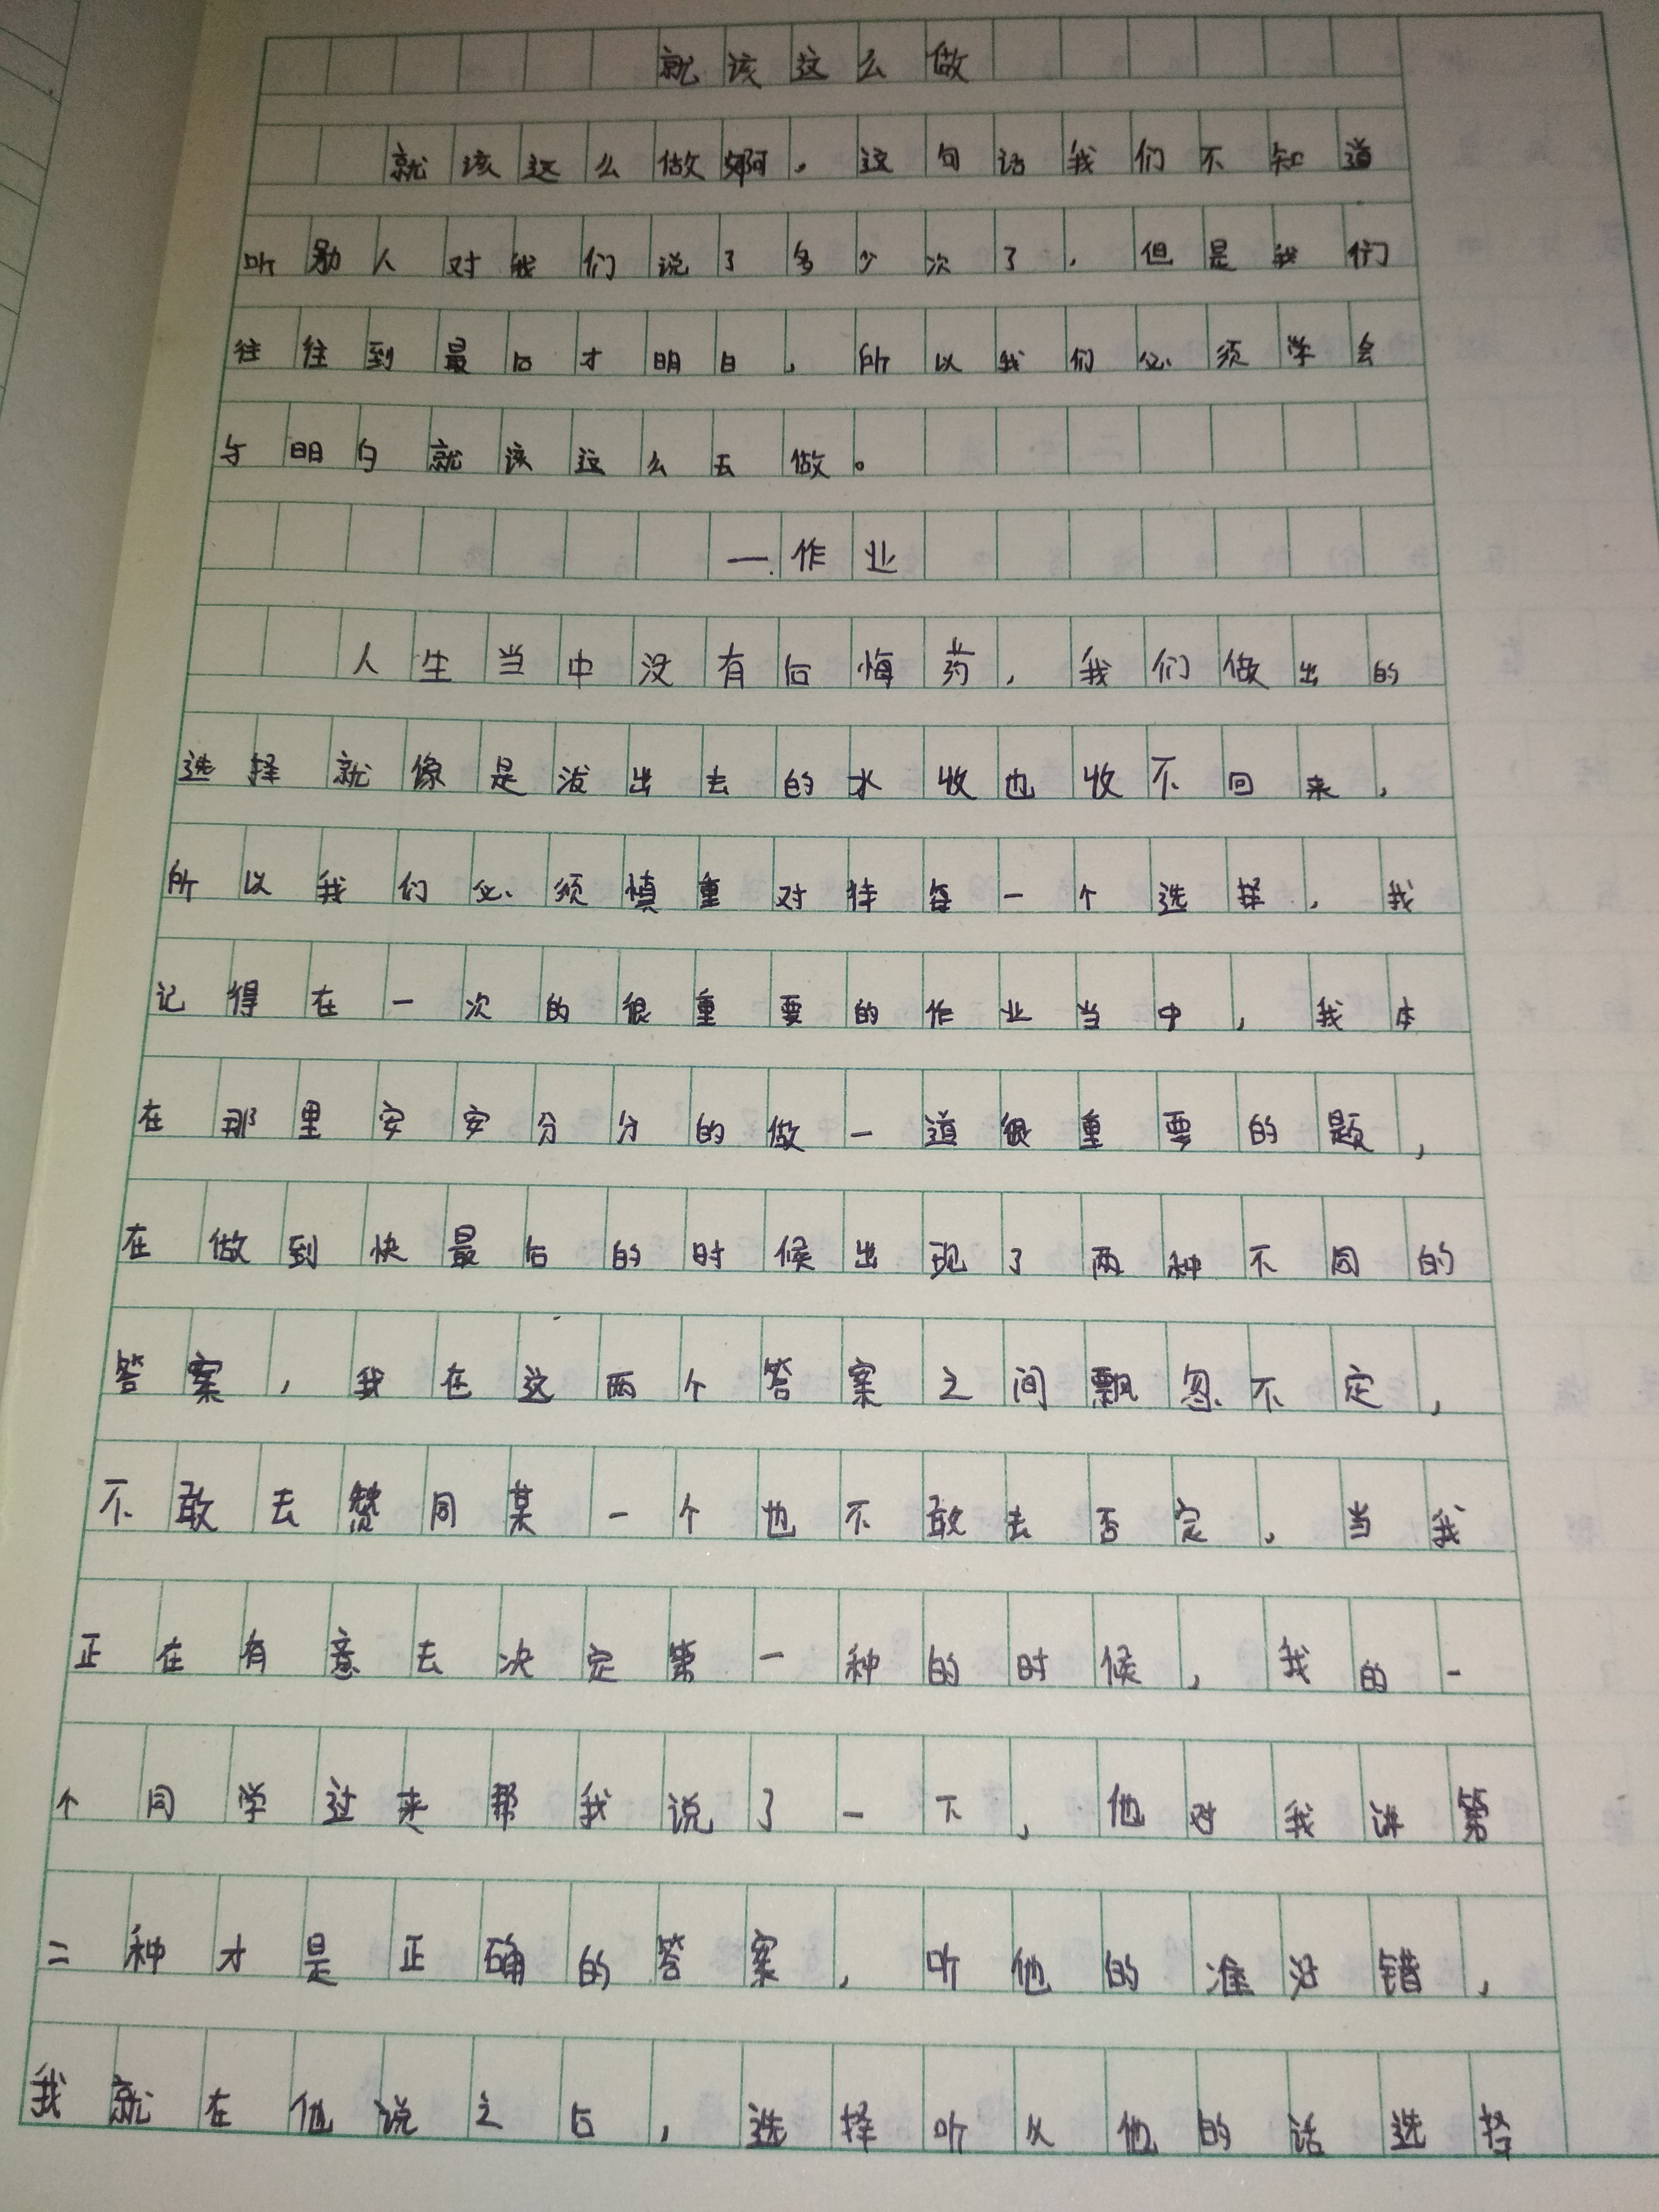 就该这么做
就该这么做啊。这句话我们不知道
听别人对我们说了多少次了,但是我们
往往到最后才明白,所以我们必须学会
与明白就该这么去做。
一.作业
人生当中没有后悔药,我们做出的
选择就像是泼出去的水收也收不回来,
所以我们必须慎重对待每一个选择,我
记得在一次的很重要的作业当中,我本
在那里安安分分的做一道很重要的题,
在做到快最后的时候出现了两种不同的
答案,我在这两个答案之间飘忽不定,
不敢去赞同某一个也不敢去否定,当我
正在有意去决定第一种的时候,我的一
个同学过来帮我说了一下,他对我讲第
二种才是正确的答案,听他的准没错,
我就在他说之后,选择听从他的话选择